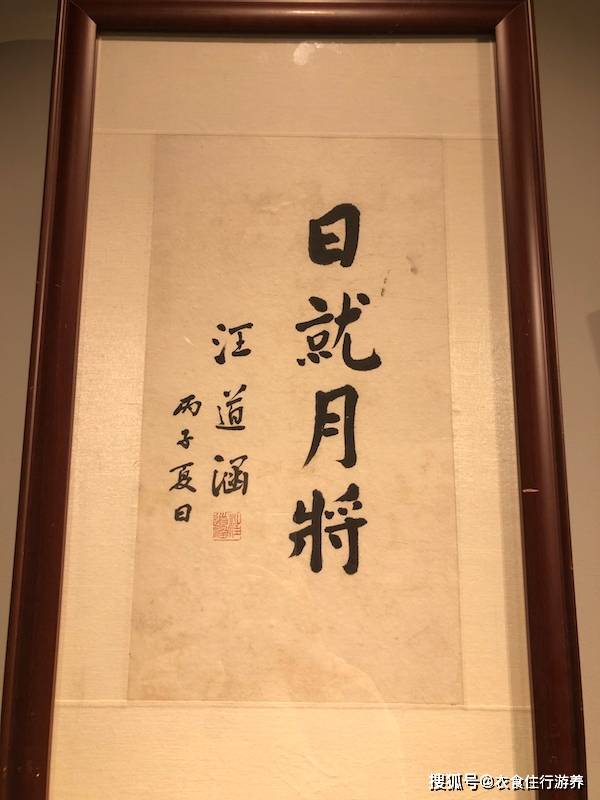 日就月將
汪道涵
丙子夏日
搜狐号@衣食住行游养